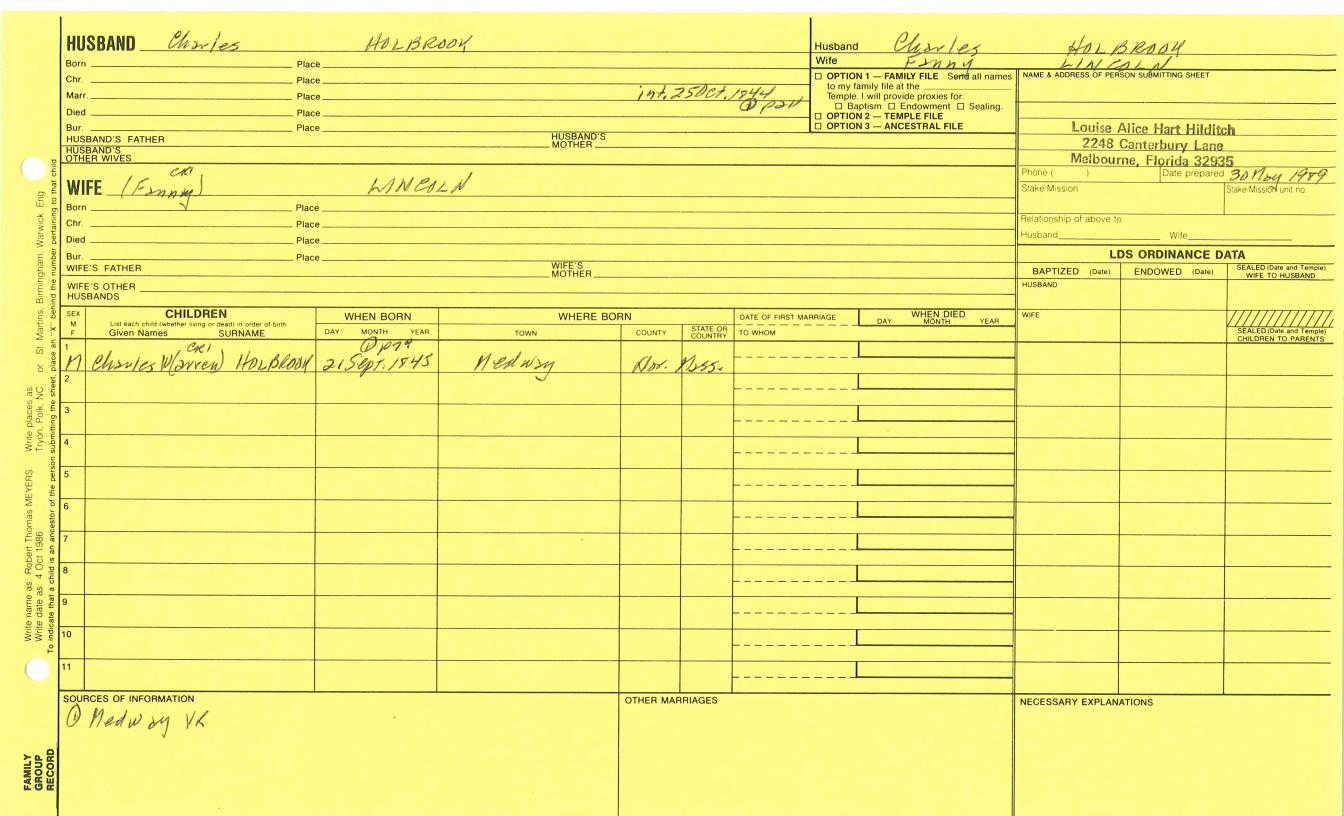 HUSBAND Charles HOLBROOK
Born Place
Chr. Place
Marr. Place int. 25 Oct. 1844
Died Place ①
Bur. Place
HUSBAND'S FATHER HUSBAND'S MOTHER
HUSBAND'S OTHER WIVES
Husband Charles HOLBROOK
Wife Fanny LINCOLN
☐ OPTION 1 — FAMILY FILE Send all names
to my family file at the
Temple. I will provide proxies for:
☐ Baptism ☐ Endowment ☐ Sealing.
☐ OPTION 2 — TEMPLE FILE
☐ OPTION 3 — ANCESTRAL FILE
NAME & ADDRESS OF PERSON SUBMITTING SHEET
Louise Alice Hart Hilditch
2248 Canterbury Lane
Melbourne, Florida 32935
Phone ( ) Date prepared 30 May 1989
Stake/Mission Stake/Mission unit no.
Relationship of above to:
Husband Wife
CR1
WIFE (Fanny) LINCOLN
Born Place
Chr. Place
Died Place
Bur. Place
WIFE'S FATHER WIFE'S MOTHER
WIFE'S OTHER HUSBANDS
LDS ORDINANCE DATA
BAPTIZED (Date) ENDOWED (Date) SEALED (Date and Temple) WIFE TO HUSBAND
HUSBAND
WIFE
SEALED (Date and Temple) CHILDREN TO PARENTS
SEX M F CHILDREN WHEN BORN WHERE BORN DATE OF FIRST MARRIAGE WHEN DIED
List each child (whether living or dead) in order of birth
Given Names SURNAME DAY MONTH YEAR TOWN COUNTY STATE OR COUNTRY TO WHOM DAY MONTH YEAR
CR1 ① p79
1 M Charles W(arren) HOLBROOK 21 Sept. 1845 Medway Nor. Mass.
2
3
4
5
6
7
8
9
10
11
SOURCES OF INFORMATION OTHER MARRIAGES NECESSARY EXPLANATIONS
① Medway VR
Write name as: Robert Thomas MEYERS Write places as: Tryon, Polk, NC or St. Martins, Birmingham, Warwick, Eng
Write date as: 4 Oct 1986
To indicate that a child is an ancestor of the person submitting the sheet, place an "X" behind the number pertaining to that child
FAMILY GROUP RECORD